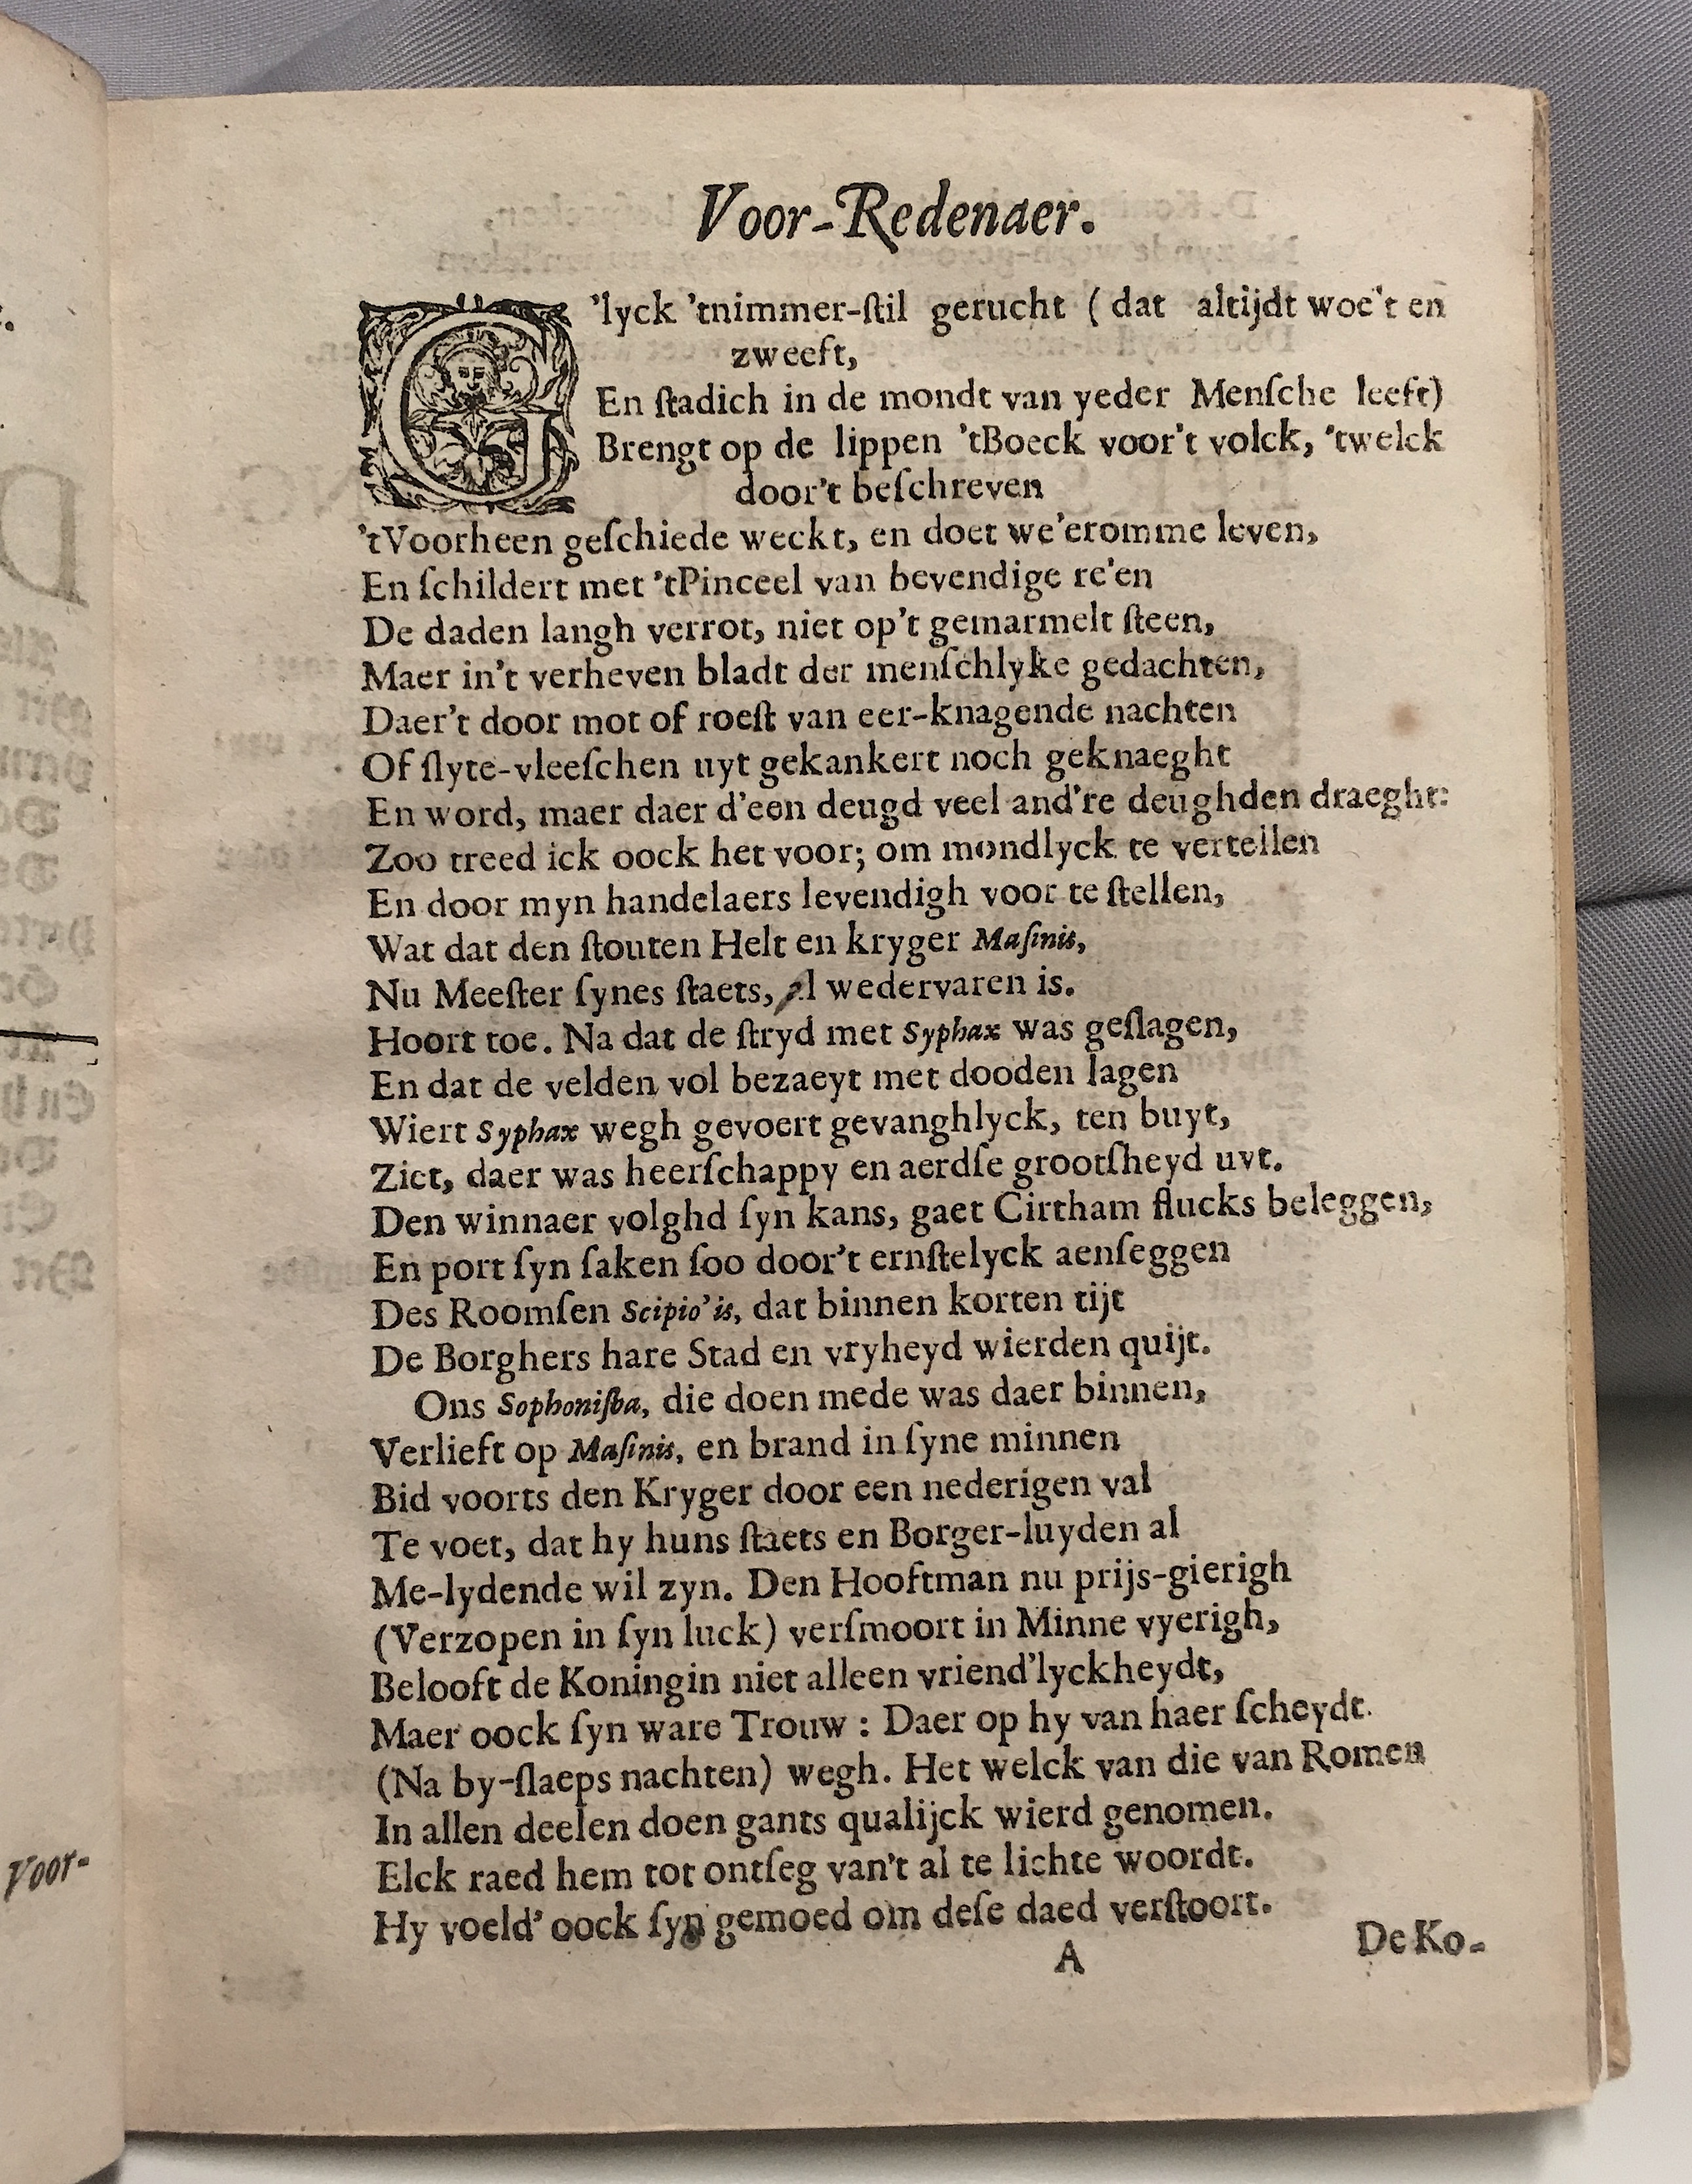 Voor-Redenaer.
G'lyck 'tnimmer-ſtil gerucht ( dat altijdt woe't en
zweeft,
En ſtadich in de mondt van yeder Menſche leeft)
Brengt op de lippen 'tBoeck voor't volck, 'twelck
door't beſchreven
'tVoorheen geſchiede weckt, en doet we'eromme leven,
En ſchildert met 'tPinceel van bevendige re'en
De daden langh verrot, niet op't gemarmelt ſteen,
Maer in't verheven bladt der menſchlyke gedachten,
Daer't door mot of roeſt van eer-knagende nachten
Of ſlyte-vleeſchen uyt gekankert noch geknaeght
En word, maer daer d'een deugd veel and're deughden draeght:
Zoo treed ick oock het voor; om mondlyck te vertellen
En door myn handelaers levendigh voor te ſtellen,
Wat dat den ſtouten Helt en kryger Maſinis,
Nu Meeſter ſynes ſtaets, al wedervaren is.
Hoort toe. Na dat de ſtryd met Syphax was geſlagen,
En dat de velden vol bezaeyt met dooden lagen
Wiert Syphax wegh gevoert gevanghlyck, ten buyt,
Ziet, daer was heerſchappy en aerdſe grootſheyd uyt.
Den winnaer volghd ſyn kans, gaet Cirtham flucks beleggen,
En port ſyn ſaken ſoo door't ernſtelyck aenſeggen
Des Roomſen Scipio'is, dat binnen korten tijt
De Borghers hare Stad en vryheyd wierden quijt.
Ons Sophoniſba, die doen mede was daer binnen,
Verlieft op Maſinis, en brand in ſyne minnen
Bid voorts den Kryger door een nederigen val
Te voet, dat hy huns ſtaets en Borger-luyden al
Me-lydende wil zyn. Den Hooftman nu prijs-gierigh
(Verzopen in ſyn luck) verſmoort in Minne vyerigh,
Belooft de Koningin niet alleen vriend'lyckheydt,
Maer oock ſyn ware Trouw : Daer op hy van haer ſcheydt.
(Na by-ſlaeps nachten) wegh. Het welck van die van Romen
In allen deelen doen gants qualijck wierd genomen.
Elck raed hem tot ontſeg van't al te lichte woordt.
Hy voeld' oock ſyn gemoed om deſe daed verſtoort.
A
De Ko-
Voor-